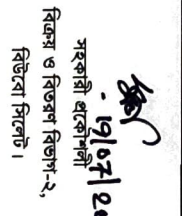 19/07/20
সহকারী প্রকৌশলী
বিক্রয় ও বিতরণ বিভাগ-২,
বিউবো সিলেট।